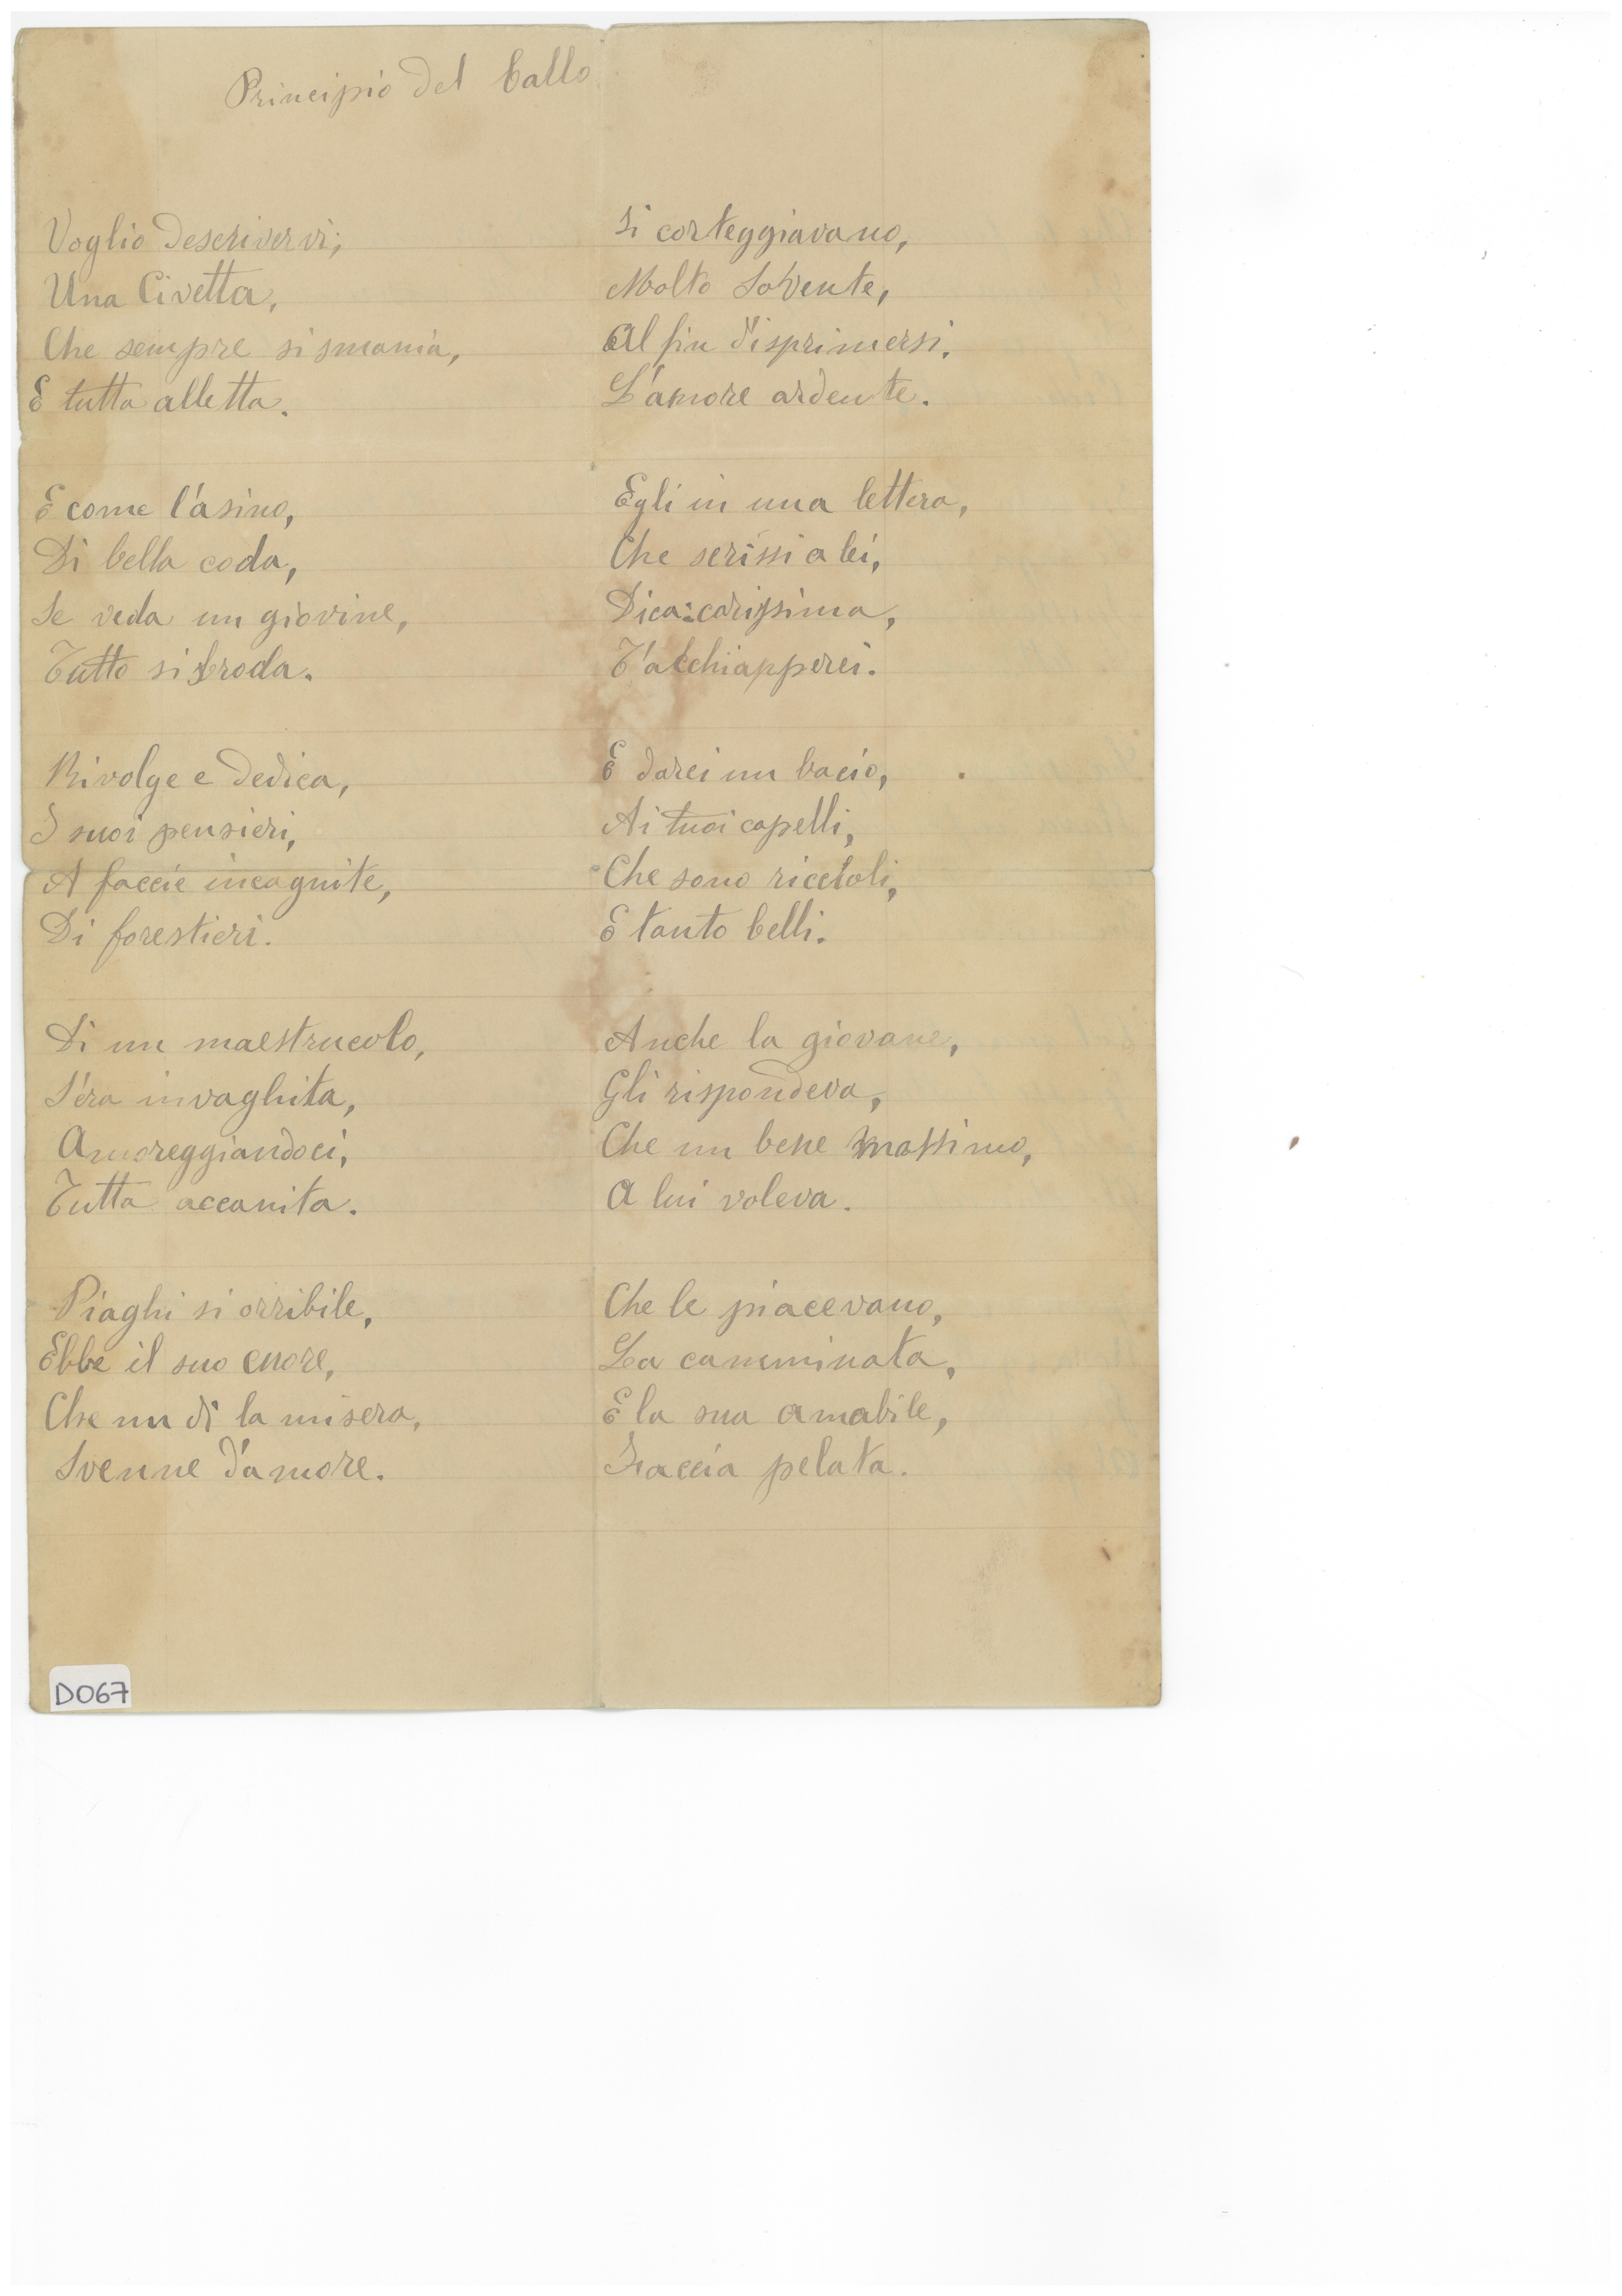 Principio del ballo
Voglio descrivervi;
Una Civetta,
Che sempre si smania,
E tutta alletta.
E come l'asino,
Di bella coda,
Se veda un giovine,
Tutto si broda.
Rivolge e dedica,
I suoi pensieri,
A faccie incognite,
Di forestieri.
Di un maestrucolo,
S'era invaghita,
Amoreggiandoci,
Tutta accanita.
Piaghi si orribile,
Ebbe il suo cuore,
Che un dì la misera,
Svenne d'amore.
Si corteggiavano,
Molto Sovente,
Al fin d'isprimersi.
L'amore ardente.
Egli in una lettera,
Che scrissi a lei,
Dica: carissima,
T'acchiapperei.
E darei un bacio,
Ai tuoi capelli,
Che sono riccioli,
E tanto belli.
Anche la giovane,
Gli rispondeva,
Che un bene massimo,
A lui voleva.
Che le piacevano,
La camminata,
E la sua amabile,
Faccia pelata.
D067